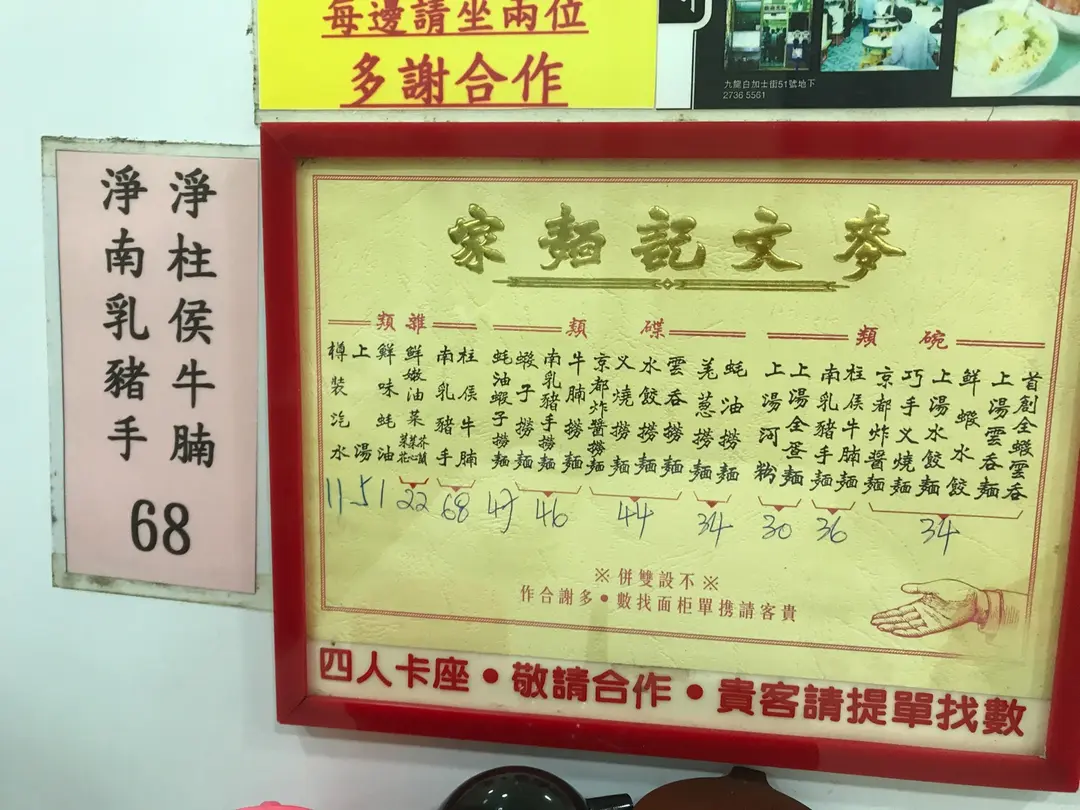 每邊請坐兩位
多謝合作
九龍白加士街51號地下
2736 5561
淨柱侯牛腩
淨南乳豬手
68
麥文記麵家
碗類
首創全蝦雲吞
上湯雲吞麵
鮮蝦水餃
上湯水餃麵
巧手叉燒麵
京都炸醬麵
34
柱侯牛腩麵
南乳豬手麵
36
上湯全蛋麵
上湯河粉
30
碟類
蚝油撈麵
羌葱撈麵
34
雲吞撈麵
水餃撈麵
叉燒撈麵
京都炸醬撈麵
44
牛腩撈麵
南乳豬手撈麵
蝦子撈麵
46
蚝油蝦子撈麵
47
雜類
柱侯牛腩
南乳豬手
68
鮮嫩油菜
芥蘭
菜心
菜花
22
鮮味蚝油
上湯
51
樽裝汽水
11
※不設雙併※
貴客請携單柜面找數•多謝合作
四人卡座•敬請合作•貴客請提單找數